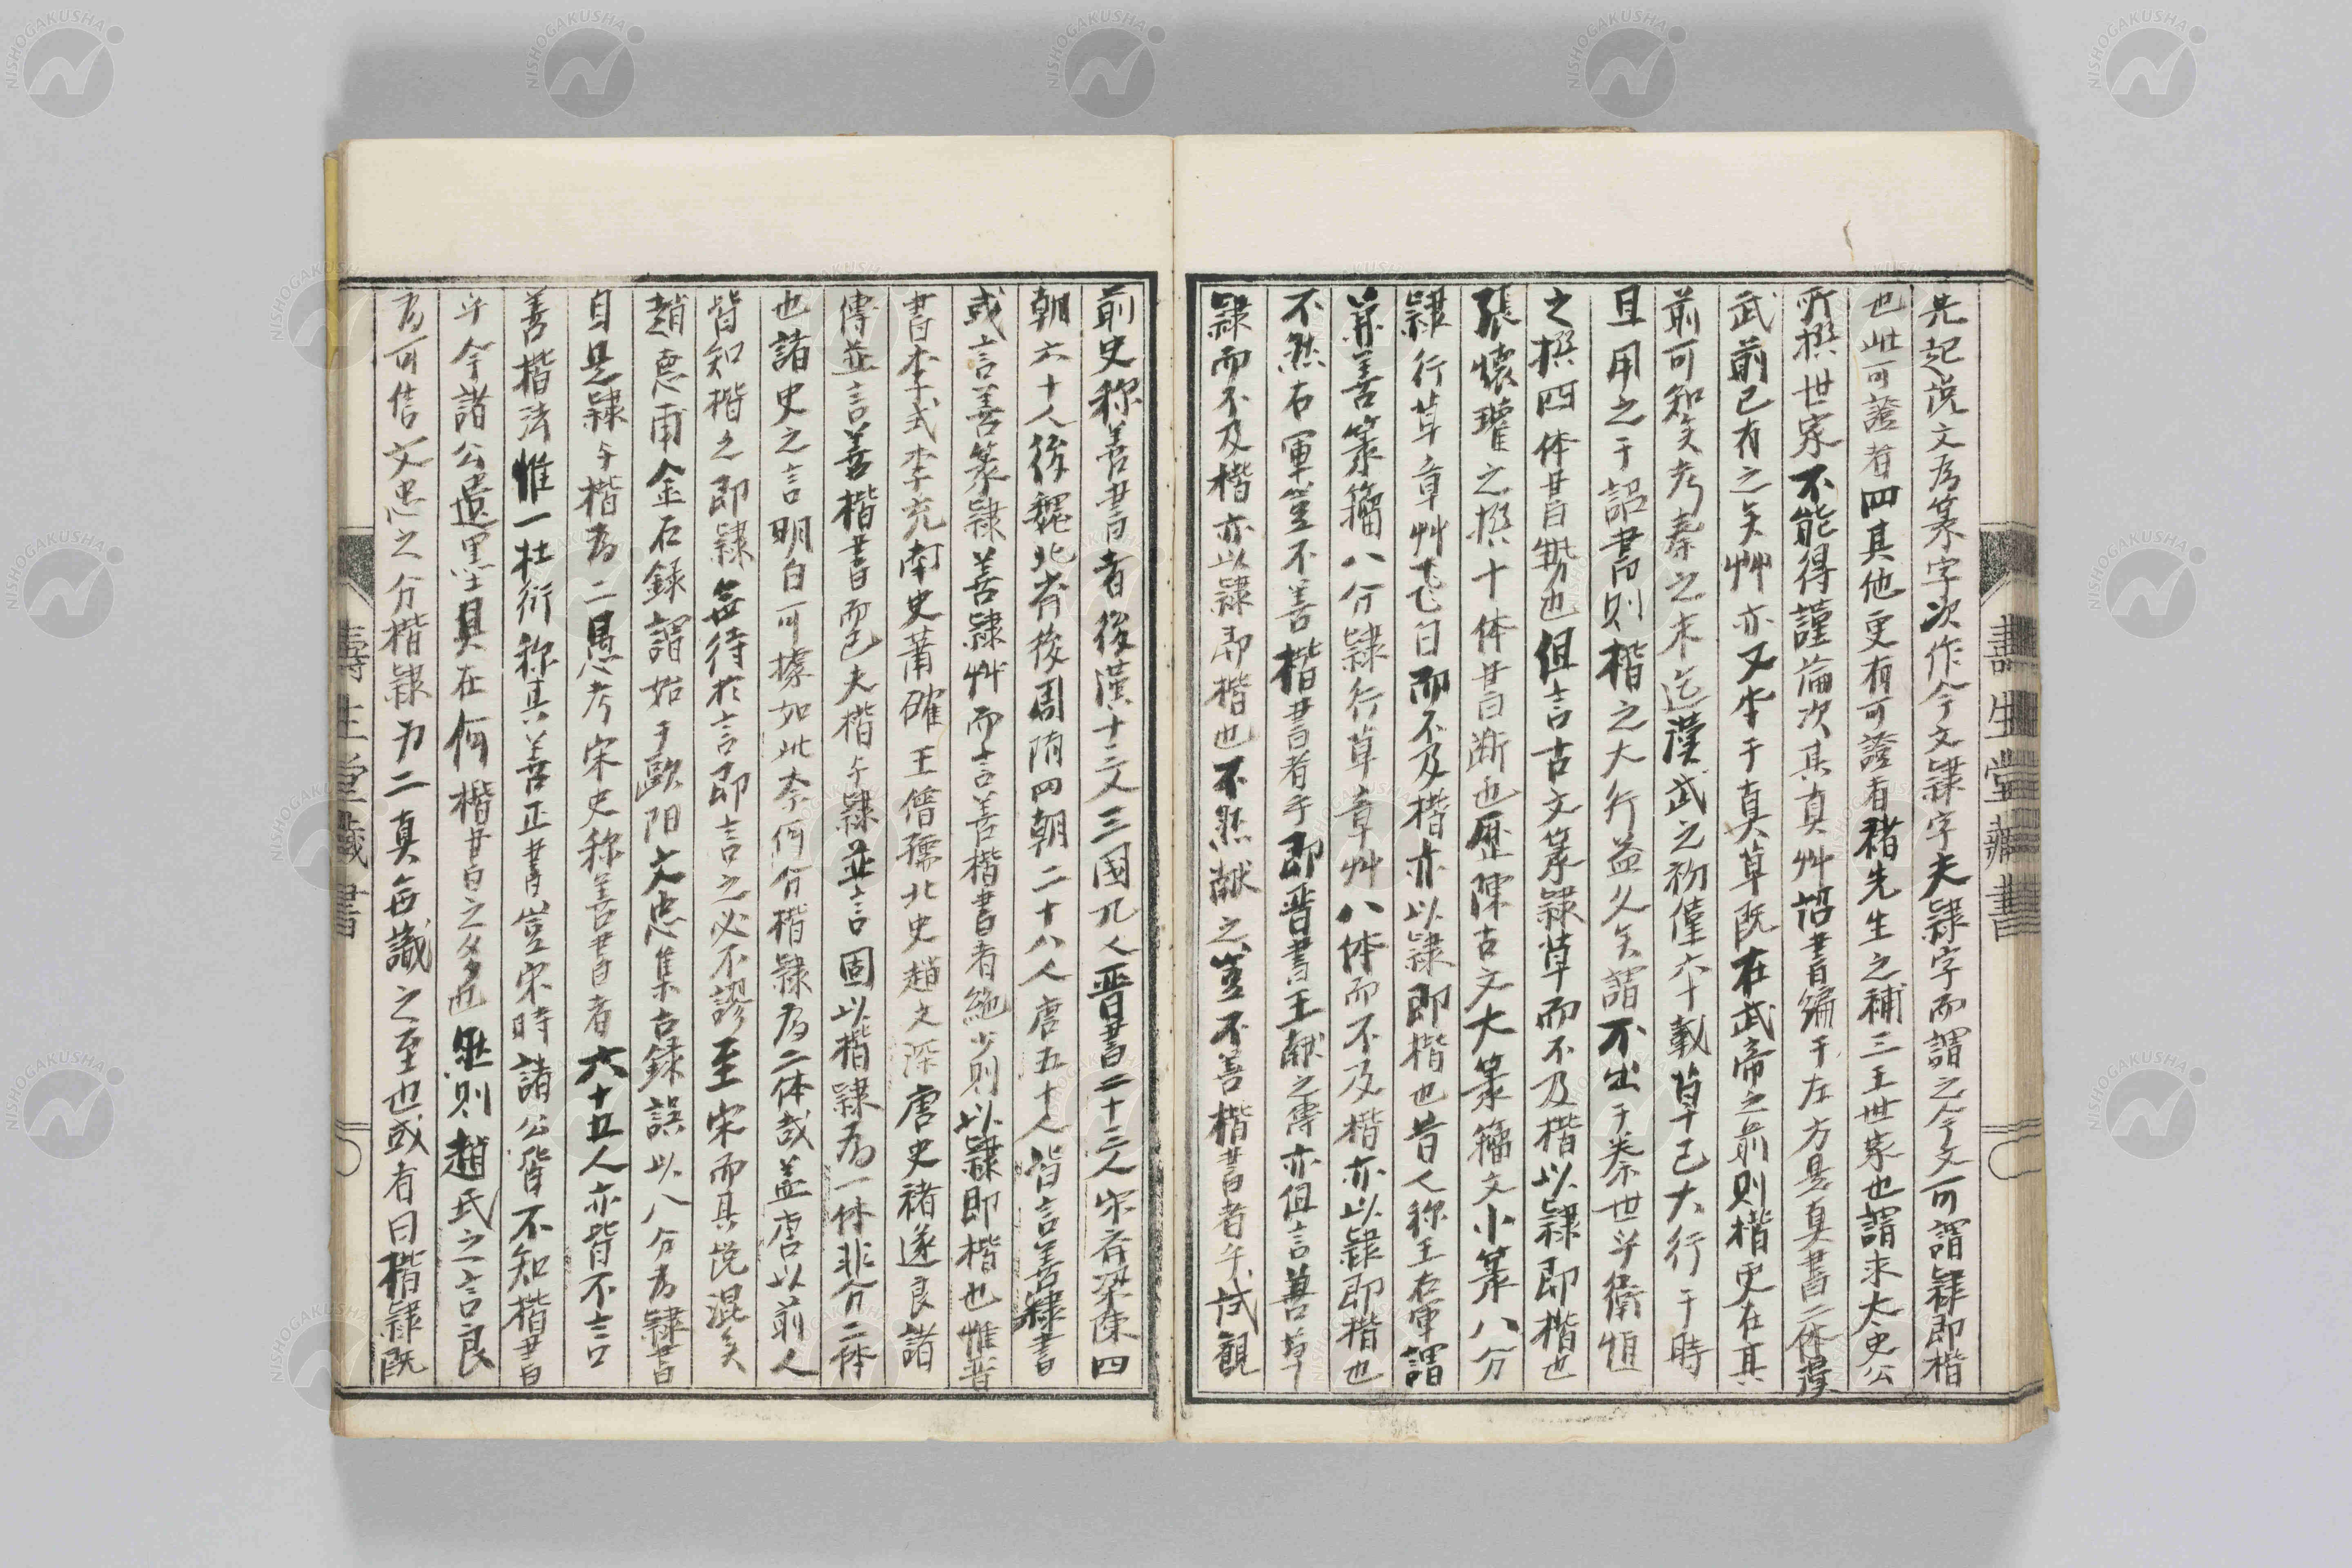 先起説文為篆字次作今文隷字夫隷字而謂之今文可謂隷即楷
也此可證者四其他更有可證者褚先生之補三王世家也謂求太史公
所撰世家不能得謹論次其真艸詔書編于左方是真書二体漢
武前已有之矣艸亦又本于真草既在武帝之前則楷更在其
前可知矣考秦之末迄漢武之初僅六十載草已大行于時
且用之于詔書則楷之大行益久矣謂不出于秦世乎衛恒
之撰四体書勢也但言古文篆隷草而不及楷以隷即楷也
張懐瓘之撰十体書断也歴陳古文大篆籀文小篆八分
隷行草章艸飞白而不及楷亦以隷即楷也昔人称王右軍謂
兼善篆籀八分隷行草章艸八体而不及楷亦以隷即楷也
不然右軍豈不善楷書者乎即晋書王献之傳亦但言善草
隷而不及楷亦以隷即楷也不然献之豈不善楷書者乎試観
前史称善書者後漢十二文三國九人晋書二十三人宋斉梁陳四
朝六十人後魏北斉後周隋四朝二十八人唐五十人皆言善隷書
或言善篆隷善隷艸而言善楷書者絶少則以隷即楷也惟晋
書李式李充南史蕭確王僧孺北史趙文深唐史褚遂良諸
傳並言善楷書而已夫楷与隷並言固以楷隷為一体非分二体
也諸史之言明白可據如此奈何分楷隷為二体哉盖唐以前人
皆知楷之即隷無待於言即言之必不謬至宋而其説混矣
趙惪甫金石録謂始于歐阳文忠集古録誤以八分為隷書
自是隷与楷為二愚考宋史称善書者六十五人亦皆不言
善楷法惟一杜衍称其善正書豈宋時諸公皆不知楷書
乎今諸公遺墨具在何楷書之多也然則趙氏之言良
為可信文忠之分楷隷为二真無識之至也或者曰楷隷既
壽生堂蔵書